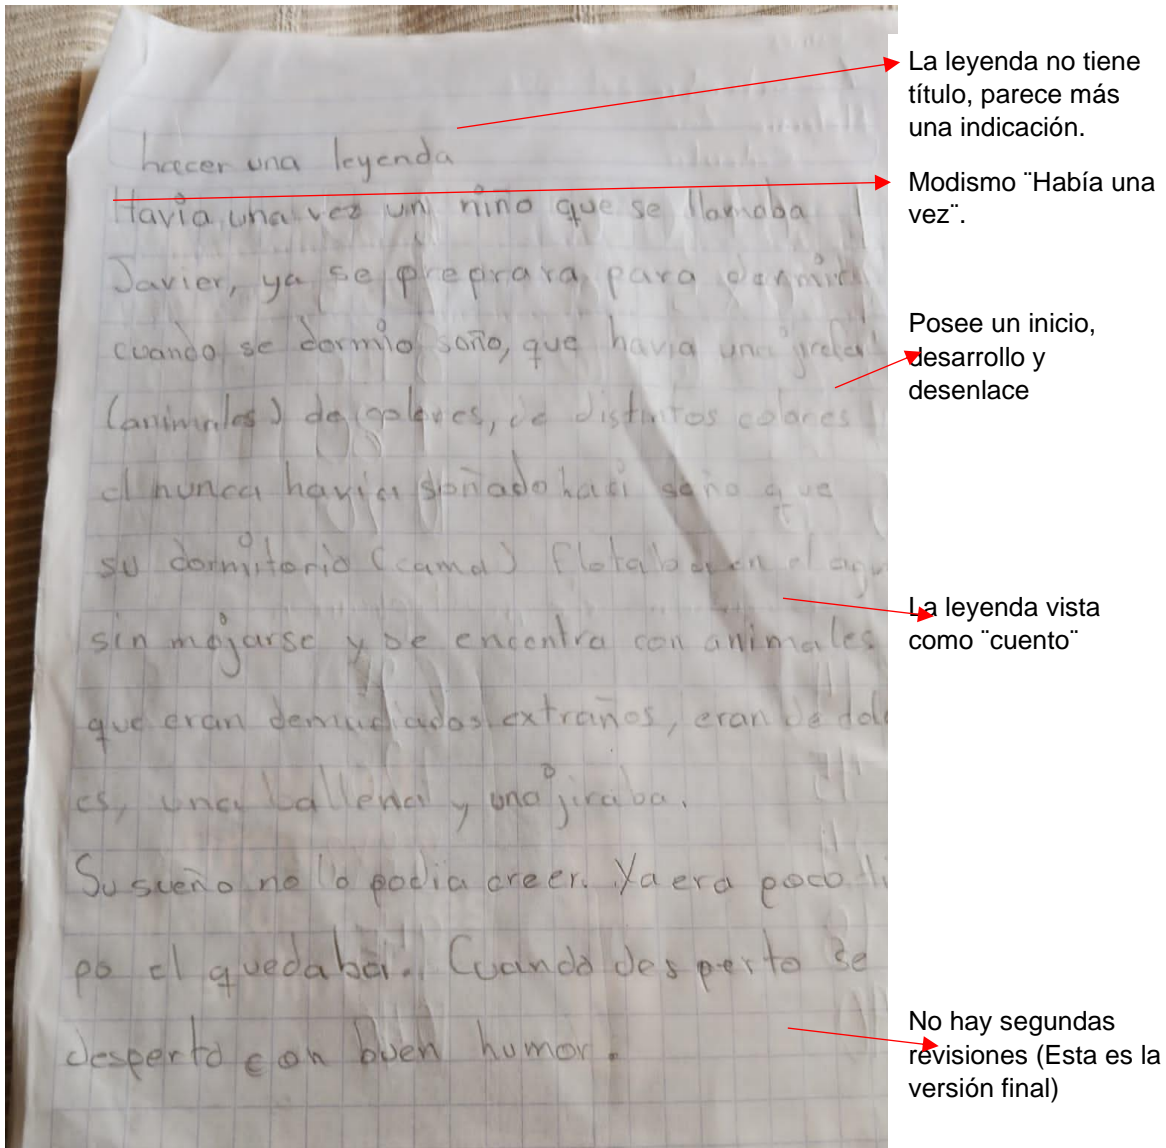 hacer una leyenda
Havia una vez un niño que se llamaba
Javier, ya se preprara para dormir
cuando se dormio soño, que havia una
(animales) de colores, de distintos colores
el nunca havia soñado haci soño que
su dormitorio (cama) flotaba en el agu
sin mojarse y se encontra con animales
que eran demaciados extraños, eran de dol
es, una ballena y una jiraba.
Su sueño no lo podia creer. Ya era poco ti
po el quedaba. Cuando desperto se
desperto con buen humor.
La leyenda no tiene
título, parece más
una indicación.
Modismo ¨Había una
vez¨.
Posee un inicio,
desarrollo y
desenlace
La leyenda vista
como ¨cuento¨
No hay segundas
revisiones (Esta es la
versión final)